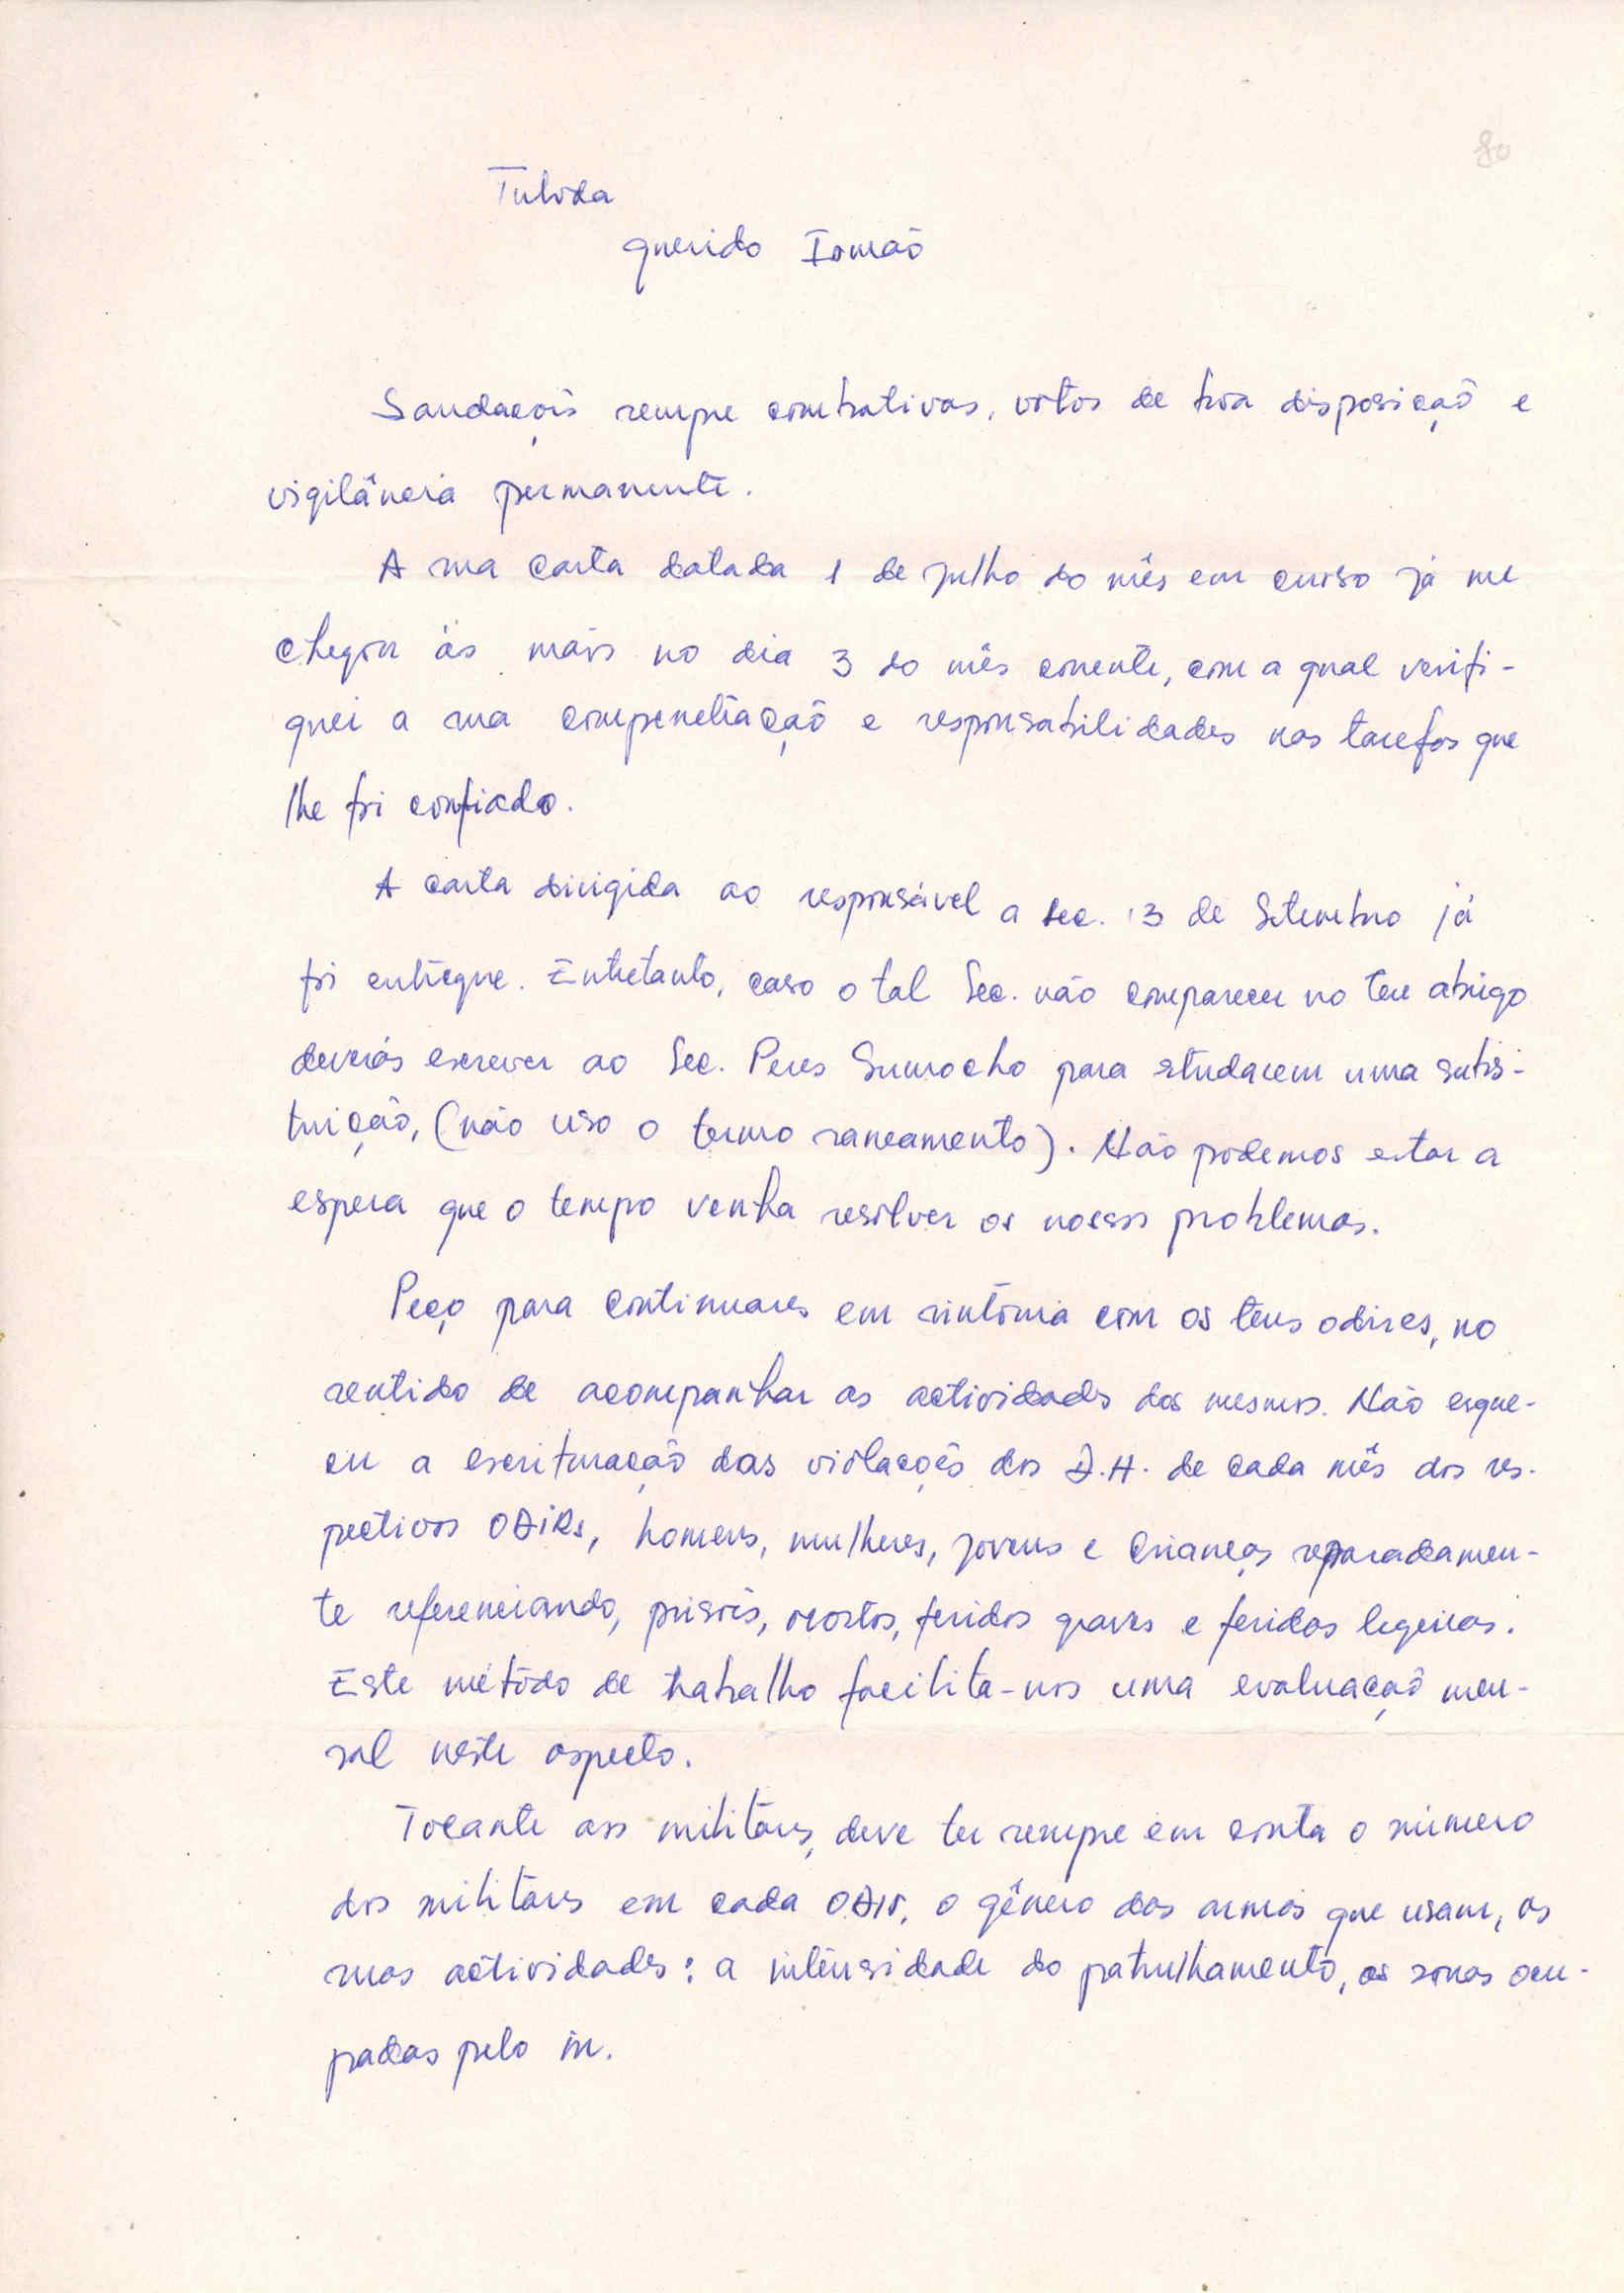 80
Tuloda
querido Iomaõ
Saudaçois sempre combativas, votos de boa disposiçaõ e
vigilância permanente.
A sua carta datada 1 de julho do mês em curso já me
chegou ás mãos no dia 3 do mês corrente, com a qual verifi-
quei a sua compenetraçaõ e responsabilidades nas tarefas que
lhe foi confiado.
A carta dirigida ao responsável a sec. 13 de Setembro já
foi entregue. Entretanto, caso o tal Sec. não comparecer no teu abrigo
deverás escrever ao Sec. Peres Sumocho para estudarem uma subs-
tuiçaõ, (não uso o termo saneamento). Não podemos estar a
espera que o tempo venha resolver os nossos problemas.
Peço para continuares em sintonia com os teus odires, no
sentido de acompanhar as actividades dos mesmos. Não esque-
cer a escrituraçaõ das violaçoẽs dos D.H. de cada mês dos res-
pectivos ODIRs, homens, mulheres, jovens e crianças separadamen-
te referenciando, prisoẽs, mortos, feridos graves e feridos legeiros.
Este método de trabalho facilita-nos uma evaluaçaõ men-
sal neste aspecto.
Tocante aos militares, deve ter sempre em conta o número
dos militares em cada ODIR, o gênero das armas que usam, as
suas actividades: a intensidade do patrulhamento, as zonas ocu-
padas pelo in.